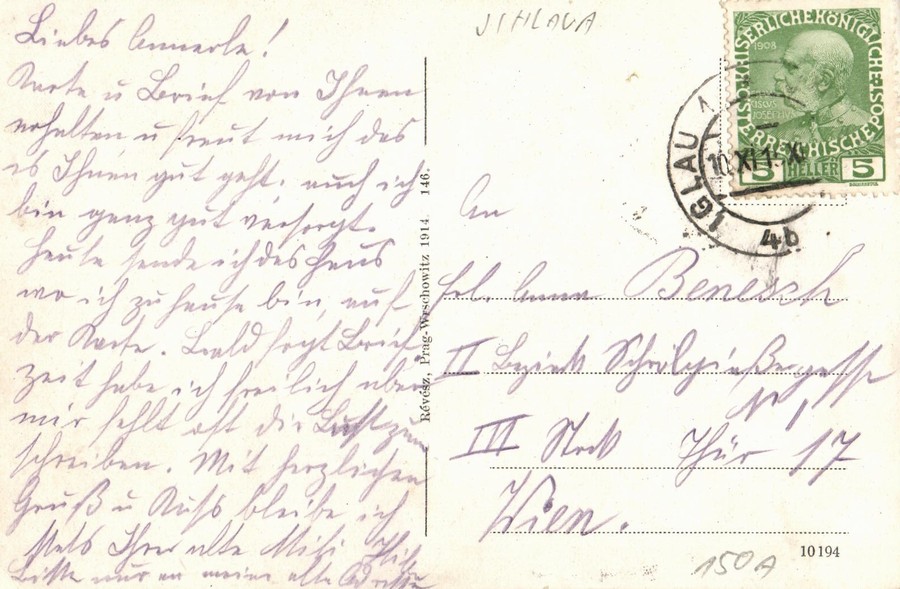 Liebes Annerle!
Karte u Brief von Ihnen
erhalten u freut mich das
es Ihnen gut geht. auch ich
bin ganz gut versorgt.
Heute sende ich das Haus
wo ich zu hause bin, auf
der Karte. Bald folgt Brief,
zeit habe ich freilich aber
mir fehlt oft die Lust zum
schreiben. Mit herzlichen
Gruß u Kuss bleibe ich
stets Ihre alte Mitzi
Bitte nur an meine alte Adresse
JIHLAVA
ÖSTERREICHISCHE POST
KAISERLICHEKÖNIGLICHE
1908
5 HELLER 5
IGLAU
10.XI.1
XI
4b
Révész, Prag-Wrschowitz 1914. 146.
An
Frl. Anna Benesch
II Bezirk
III Stock Thür 17
Wien.
10194
150A